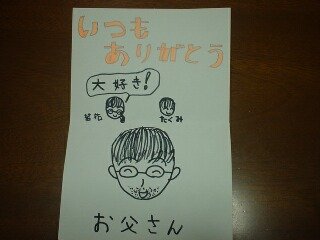 いつも
ありがとう
大好き!
たくみ
お父さん